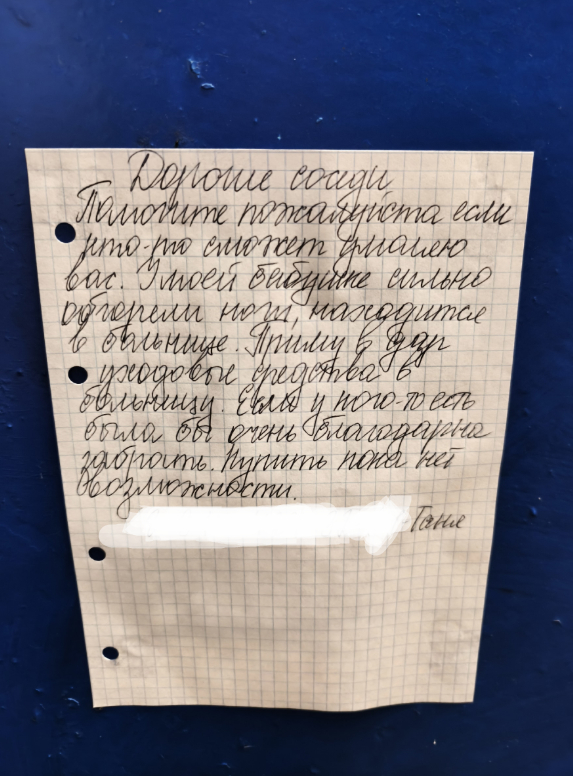 Дорогие соседи
Помогите пожалуйста если
кто-то сможет умоляю
вас. У моей бабушке сильно
обгорели ноги, находится
в больнице. Приму в дар
уходовые средства в
больницу. Если у кого-то есть
была бы очень благодарна
забрать. Купить пока нет
возможности.
Таня